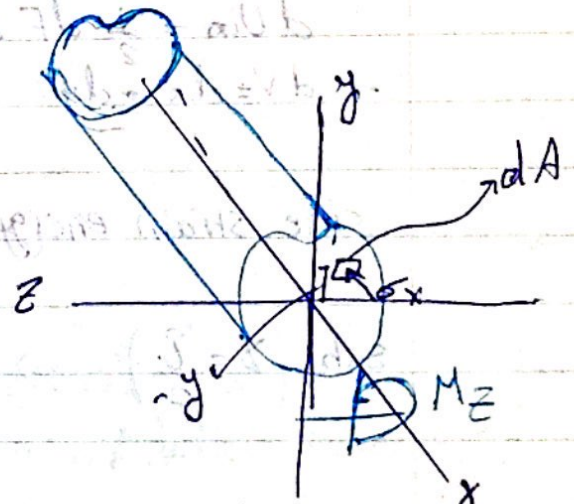 y
dA
Z
σx
-y
Mz
x